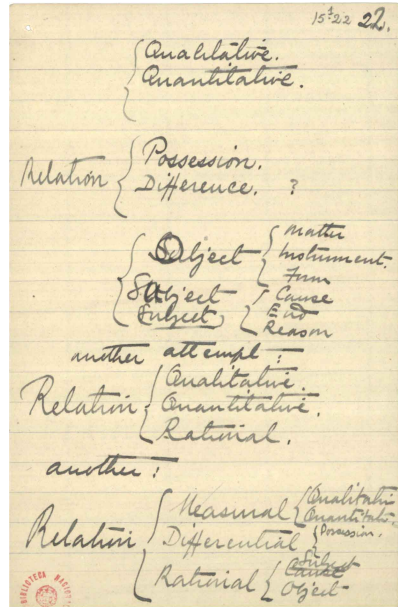 15-22 22.
Qualitative.
Quantitative.
Relation
Possession.
Difference. ?
Object
Matter
Instrument.
Form
Subject
Subject
Cause
End
Reason
another attempt:
Relation
Qualitative.
Quantitative.
Rational.
another:
Relation
Measural
Qualitative
Quantitati
Differential
Possession.
Rational
Subject
Cause
Object
BIBLIOTECA NACIO